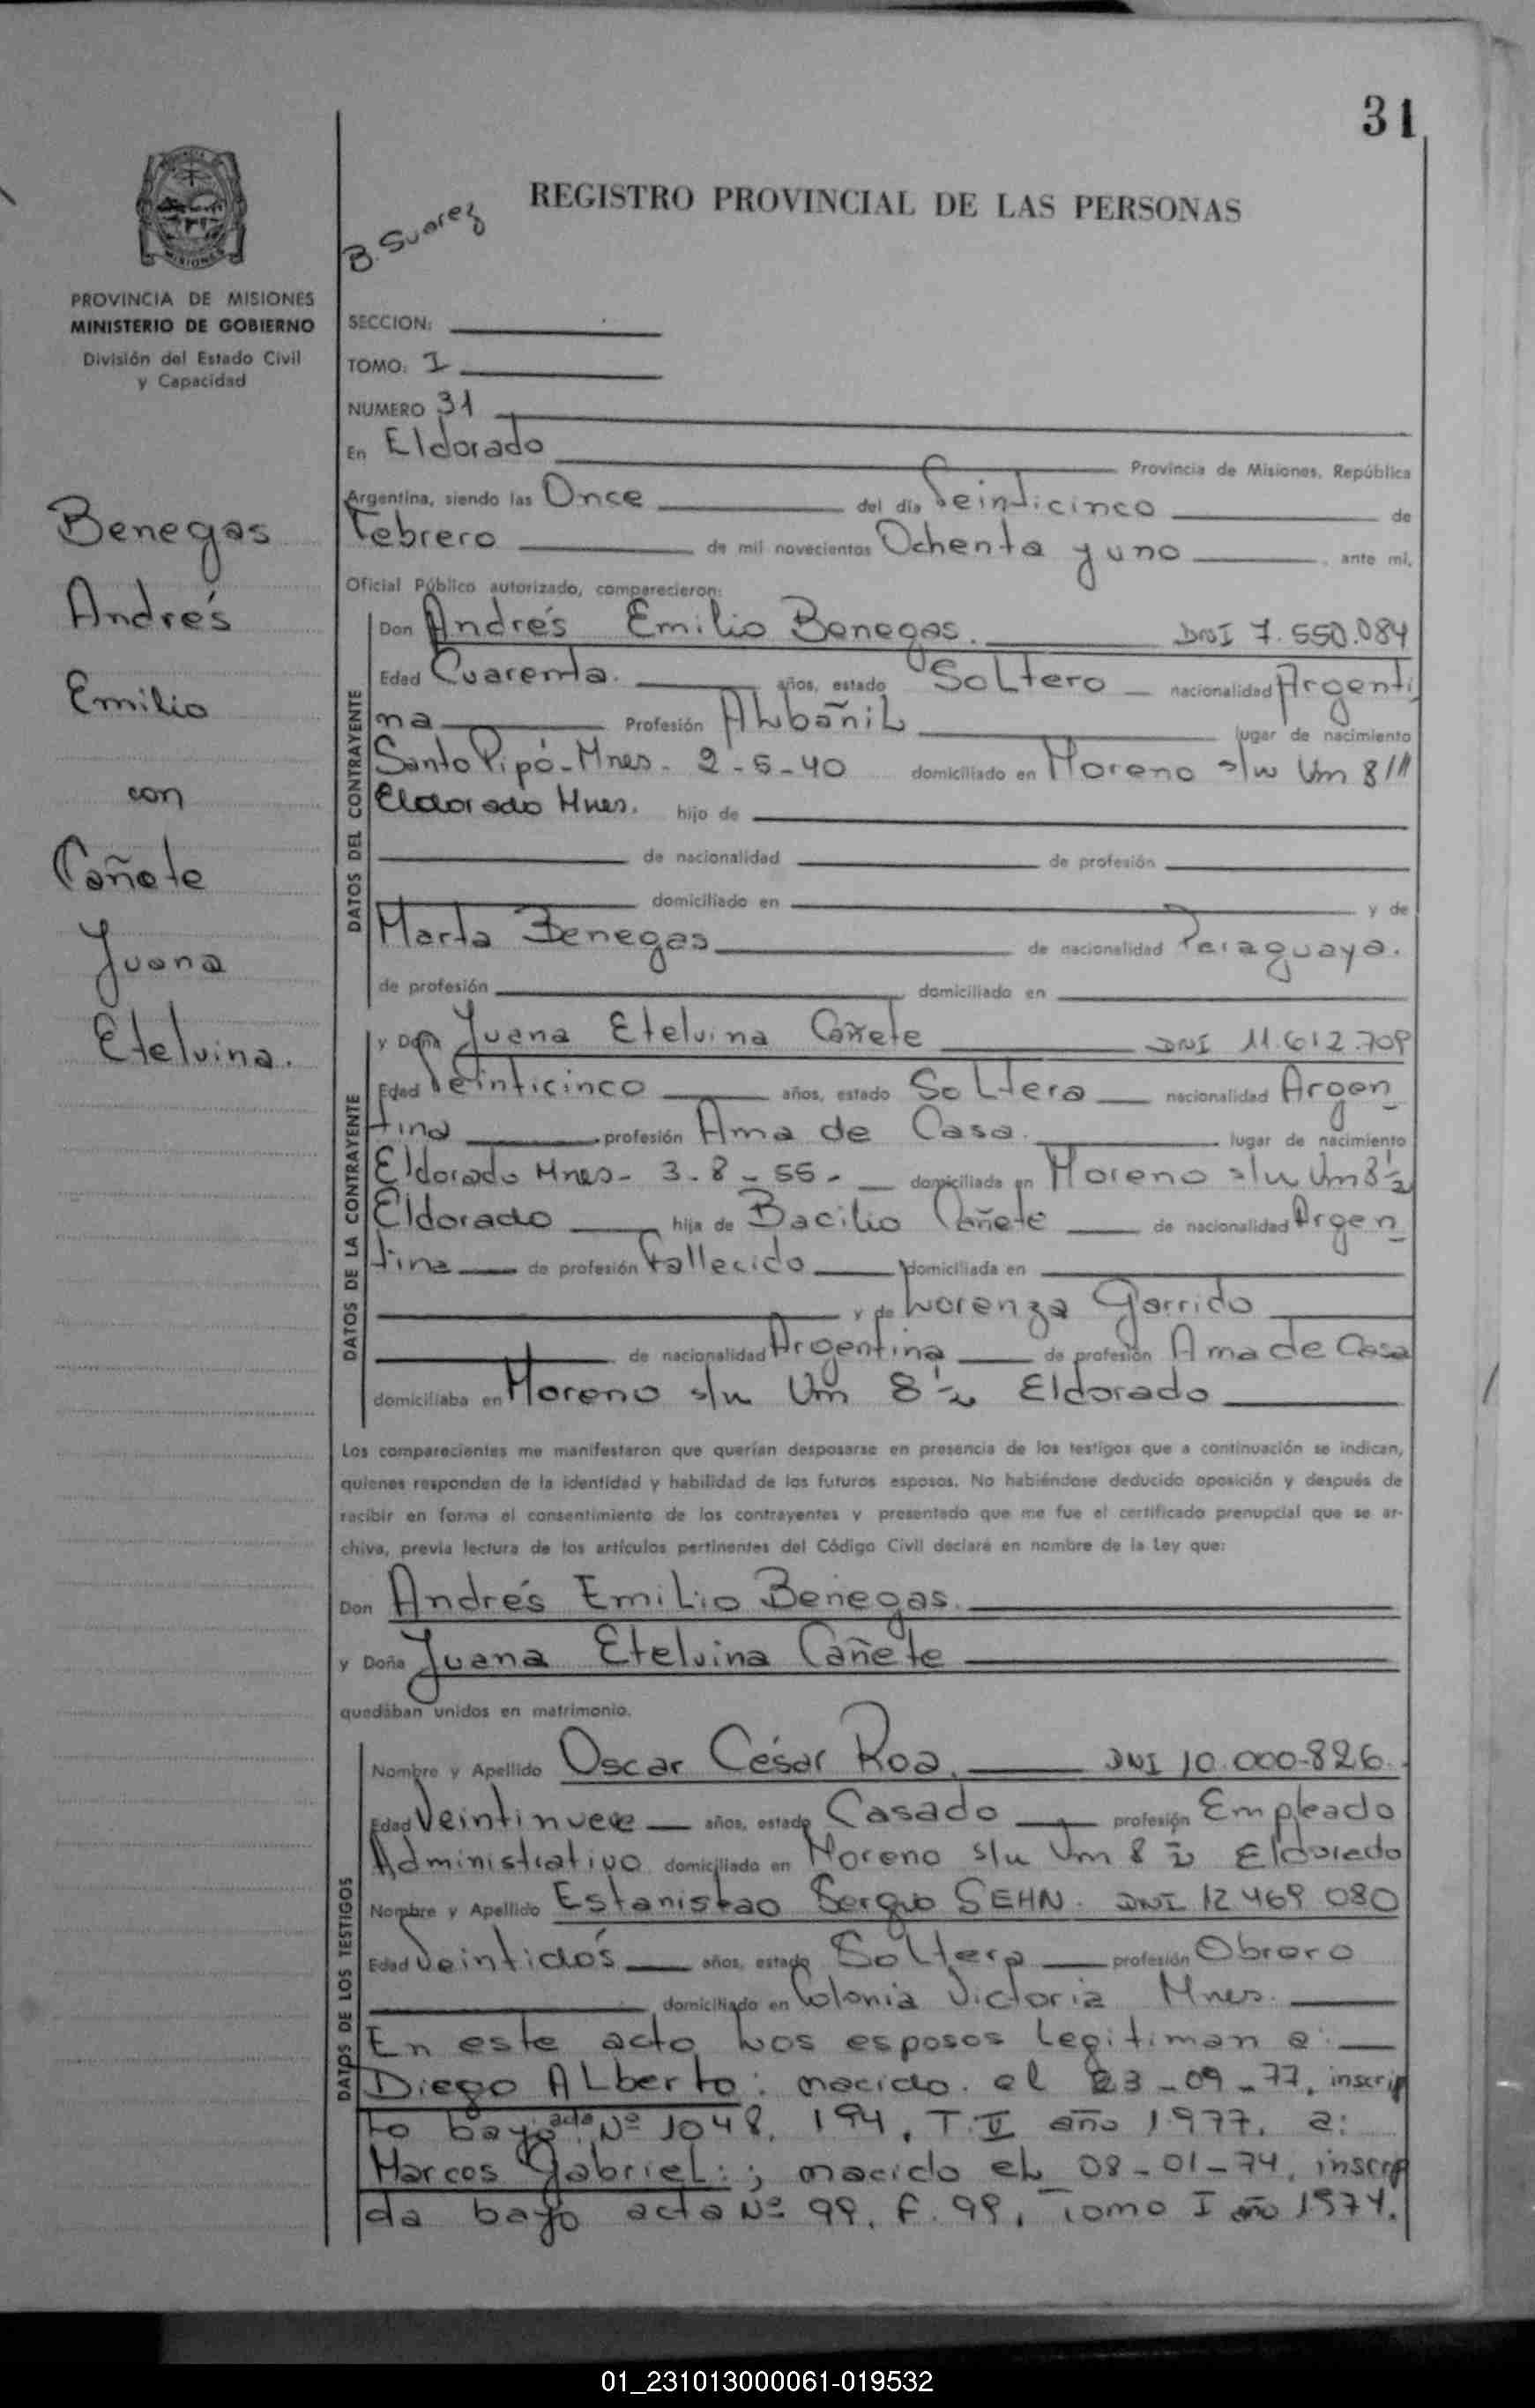 31
REGISTRO PROVINCIAL DE LAS PERSONAS
B. Suarez
PROVINCIA DE MISIONES
MINISTERIO DE GOBIERNO
División del Estado Civil
y Capacidad
SECCION:
TOMO: I
NUMERO 31
En Eldorado Provincia de Misiones, República
Argentina, siendo las Once del día Veinticinco de
Febrero de mil novecientos Ochenta y uno, ante mí,
Oficial Público autorizado, comparecieron:
Benegas
Andrés
Emilio
con
Cañete
Juana
Etelvina.
DATOS DEL CONTRAYENTE
Don Andrés Emilio Benegas. DNI 7.550.084
Edad Cuarenta. años, estado Soltero nacionalidad Argenti
na Profesión Albañil lugar de nacimiento
Santo Pipó - Mnes - 2-5-40 domiciliado en Moreno s/n Km 8
Eldorado Mnes. hijo de
de nacionalidad de profesión
domiciliado en y de
Marta Benegas de nacionalidad Paraguaya.
de profesión domiciliado en
DATOS DE LA CONTRAYENTE
y Doña Juana Etelvina Cañete DNI 11.612.709
Edad Veinticinco años, estado Soltera nacionalidad Argen
tina profesión Ama de Casa. lugar de nacimiento
Eldorado Mnes - 3-8-55 - domiciliada en Moreno s/n Km 8½
Eldorado hija de Bacilio Cañete de nacionalidad Argen
tina de profesión Fallecido domiciliada en
y de Lorenza Garrido
de nacionalidad Argentina de profesión Ama de Casa
domiciliaba en Moreno s/n Km 8½ Eldorado
Los comparecientes me manifestaron que querían desposarse en presencia de los testigos que a continuación se indican,
quienes responden de la identidad y habilidad de los futuros esposos. No habiéndose deducido oposición y después de
recibir en forma el consentimiento de los contrayentes y presentado que me fue el certificado prenupcial que se ar-
chiva, previa lectura de los artículos pertinentes del Código Civil declaré en nombre de la Ley que:
Don Andrés Emilio Benegas.
y Doña Juana Etelvina Cañete
quedaban unidos en matrimonio.
DATOS DE LOS TESTIGOS
Nombre y Apellido Oscar César Roa. DNI 10.000.826.
Edad Veintinueve años, estado Casado profesión Empleado
Administrativo domiciliado en Moreno s/n Km 8½ Eldorado
Nombre y Apellido Estanislao Sergio SEHN. DNI 12 469 080
Edad Veintidós años, estado Soltero profesión Obrero
domiciliado en Colonia Victoria Mnes.
En este acto los esposos legitiman a:
Diego Alberto: nacido el 23-09-77, inscrip
to bajo acta Nº 1048, 194, T. II año 1977. a:
Marcos Gabriel:; nacido el 08-01-74, inscrip
da bajo acta Nº 99, F. 99, Tomo I año 1974.
01_231013000061-019532